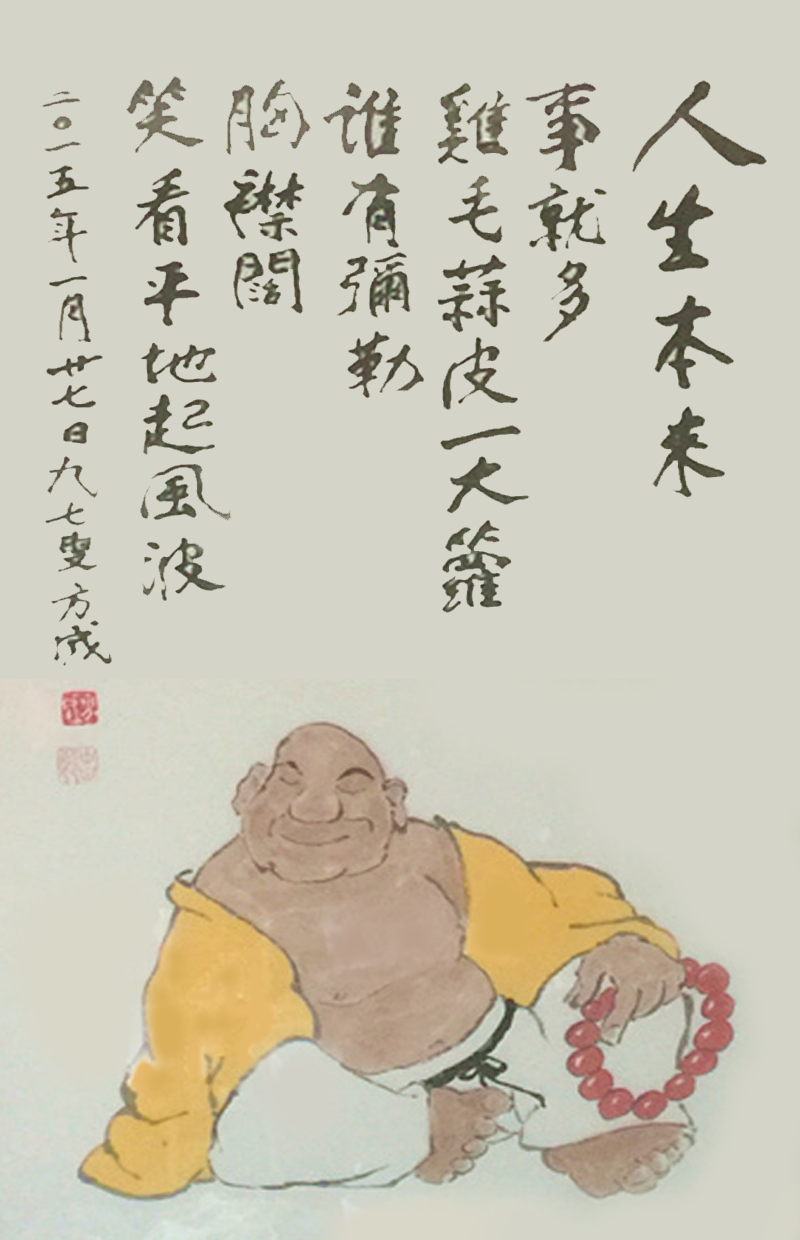 人生本来
事就多
雞毛蒜皮一大籮
誰有彌勒
胸襟闊
笑看平地起風波
二〇一五年一月廿七日九七叟方成